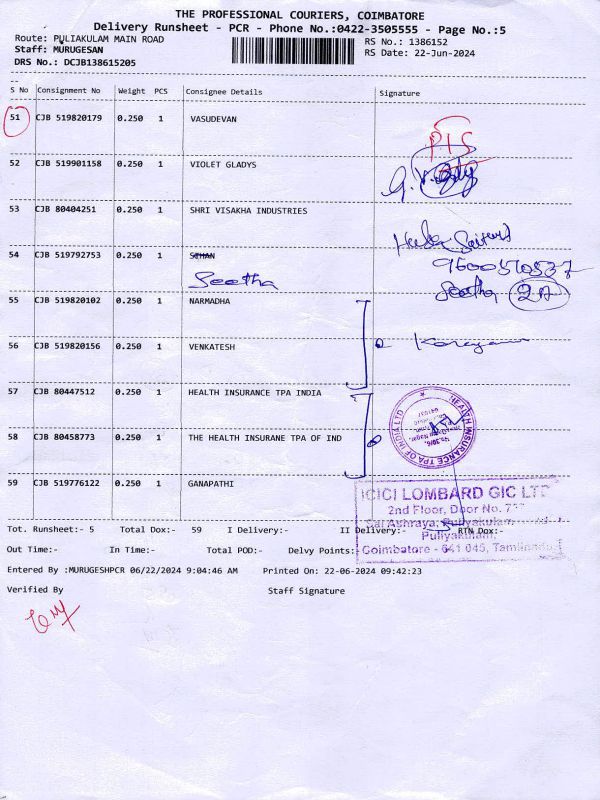 THE PROFESSIONAL COURIERS, COIMBATORE
Delivery Runsheet - PCR - Phone No.:0422-3505555 - Page No.:5
Route: PULIAKULAM MAIN ROAD RS No.: 1386152
Staff: MURUGESAN RS Date: 22-Jun-2024
DRS No.: DCJB138615205
S No Consignment No Weight PCS Consignee Details Signature
51 CJB 519820179 0.250 1 VASUDEVAN
52 CJB 519901158 0.250 1 VIOLET GLADYS
53 CJB 80404251 0.250 1 SHRI VISAKHA INDUSTRIES
54 CJB 519792753 0.250 1 SEHAN 9600570537
Seetha Seetha 2A
55 CJB 519820102 0.250 1 NARMADHA
56 CJB 519820156 0.250 1 VENKATESH
57 CJB 80447512 0.250 1 HEALTH INSURANCE TPA INDIA
HEALTH INSURANCE TPA OF INDIA LTD
58 CJB 80458773 0.250 1 THE HEALTH INSURANE TPA OF IND
59 CJB 519776122 0.250 1 GANAPATHI
ICICI LOMBARD GIC LTD
2nd Floor, Door No.
Sai Ashraya, Puliyakulam,
Puliyakulam,
Coimbatore - 641 045, Tamilnadu
Tot. Runsheet:- 5 Total Dox:- 59 I Delivery:- II Delivery:- RTN Dox:-
Out Time:- In Time:- Total POD:- Delvy Points:
Entered By :MURUGESHPCR 06/22/2024 9:04:46 AM Printed On: 22-06-2024 09:42:23
Verified By Staff Signature